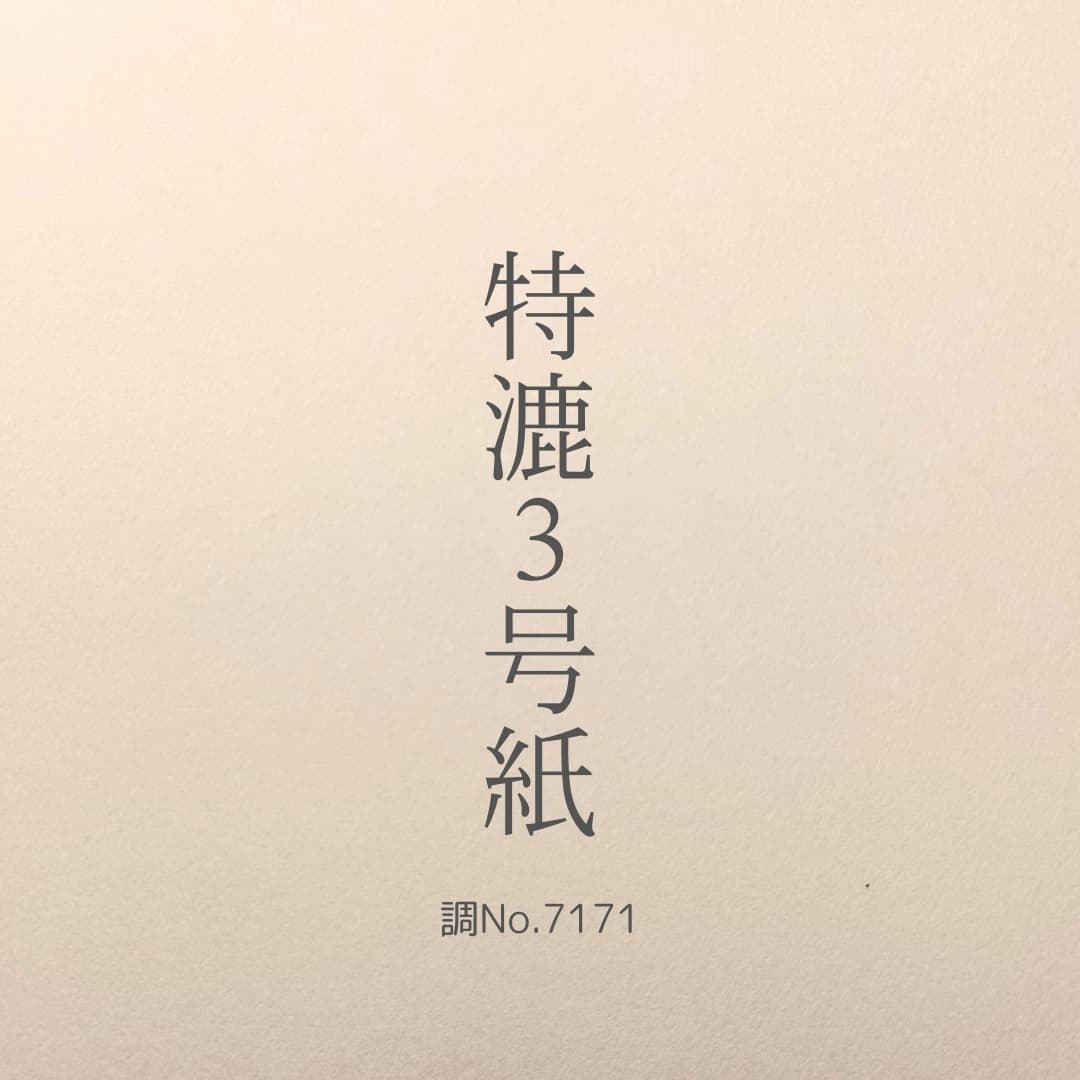 特漉3号紙
調No.7171